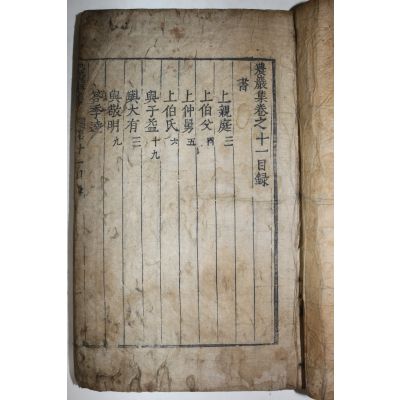 農巖集卷之十一目録
書
上親庭 三
上伯父 四
上仲舅 五
上伯氏 六
與子益 十九
與大有 三
與敬明 九
答季達